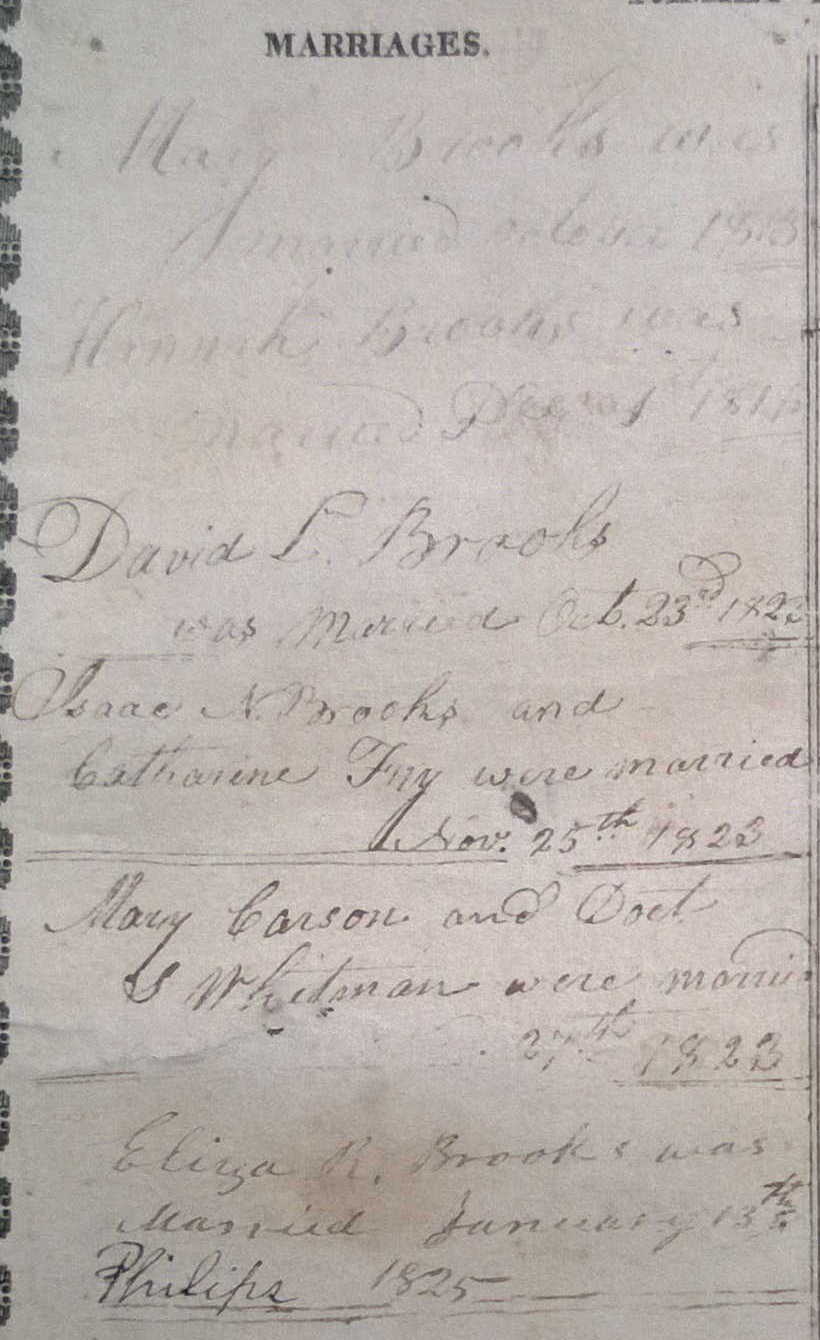 MARRIAGES.
Mary Brooks was
married
Hannah Brooks was
married Dec 1st
David L. Brooks
was Married Oct. 23rd 1823
Isaac N. Brooks and
Catharine Fry were married
Nov. 25th 1823
Mary Carson and Doct
S Whitman were marri
27th 1823
Eliza R. Brooks was
Married January 13th
Philips 1825